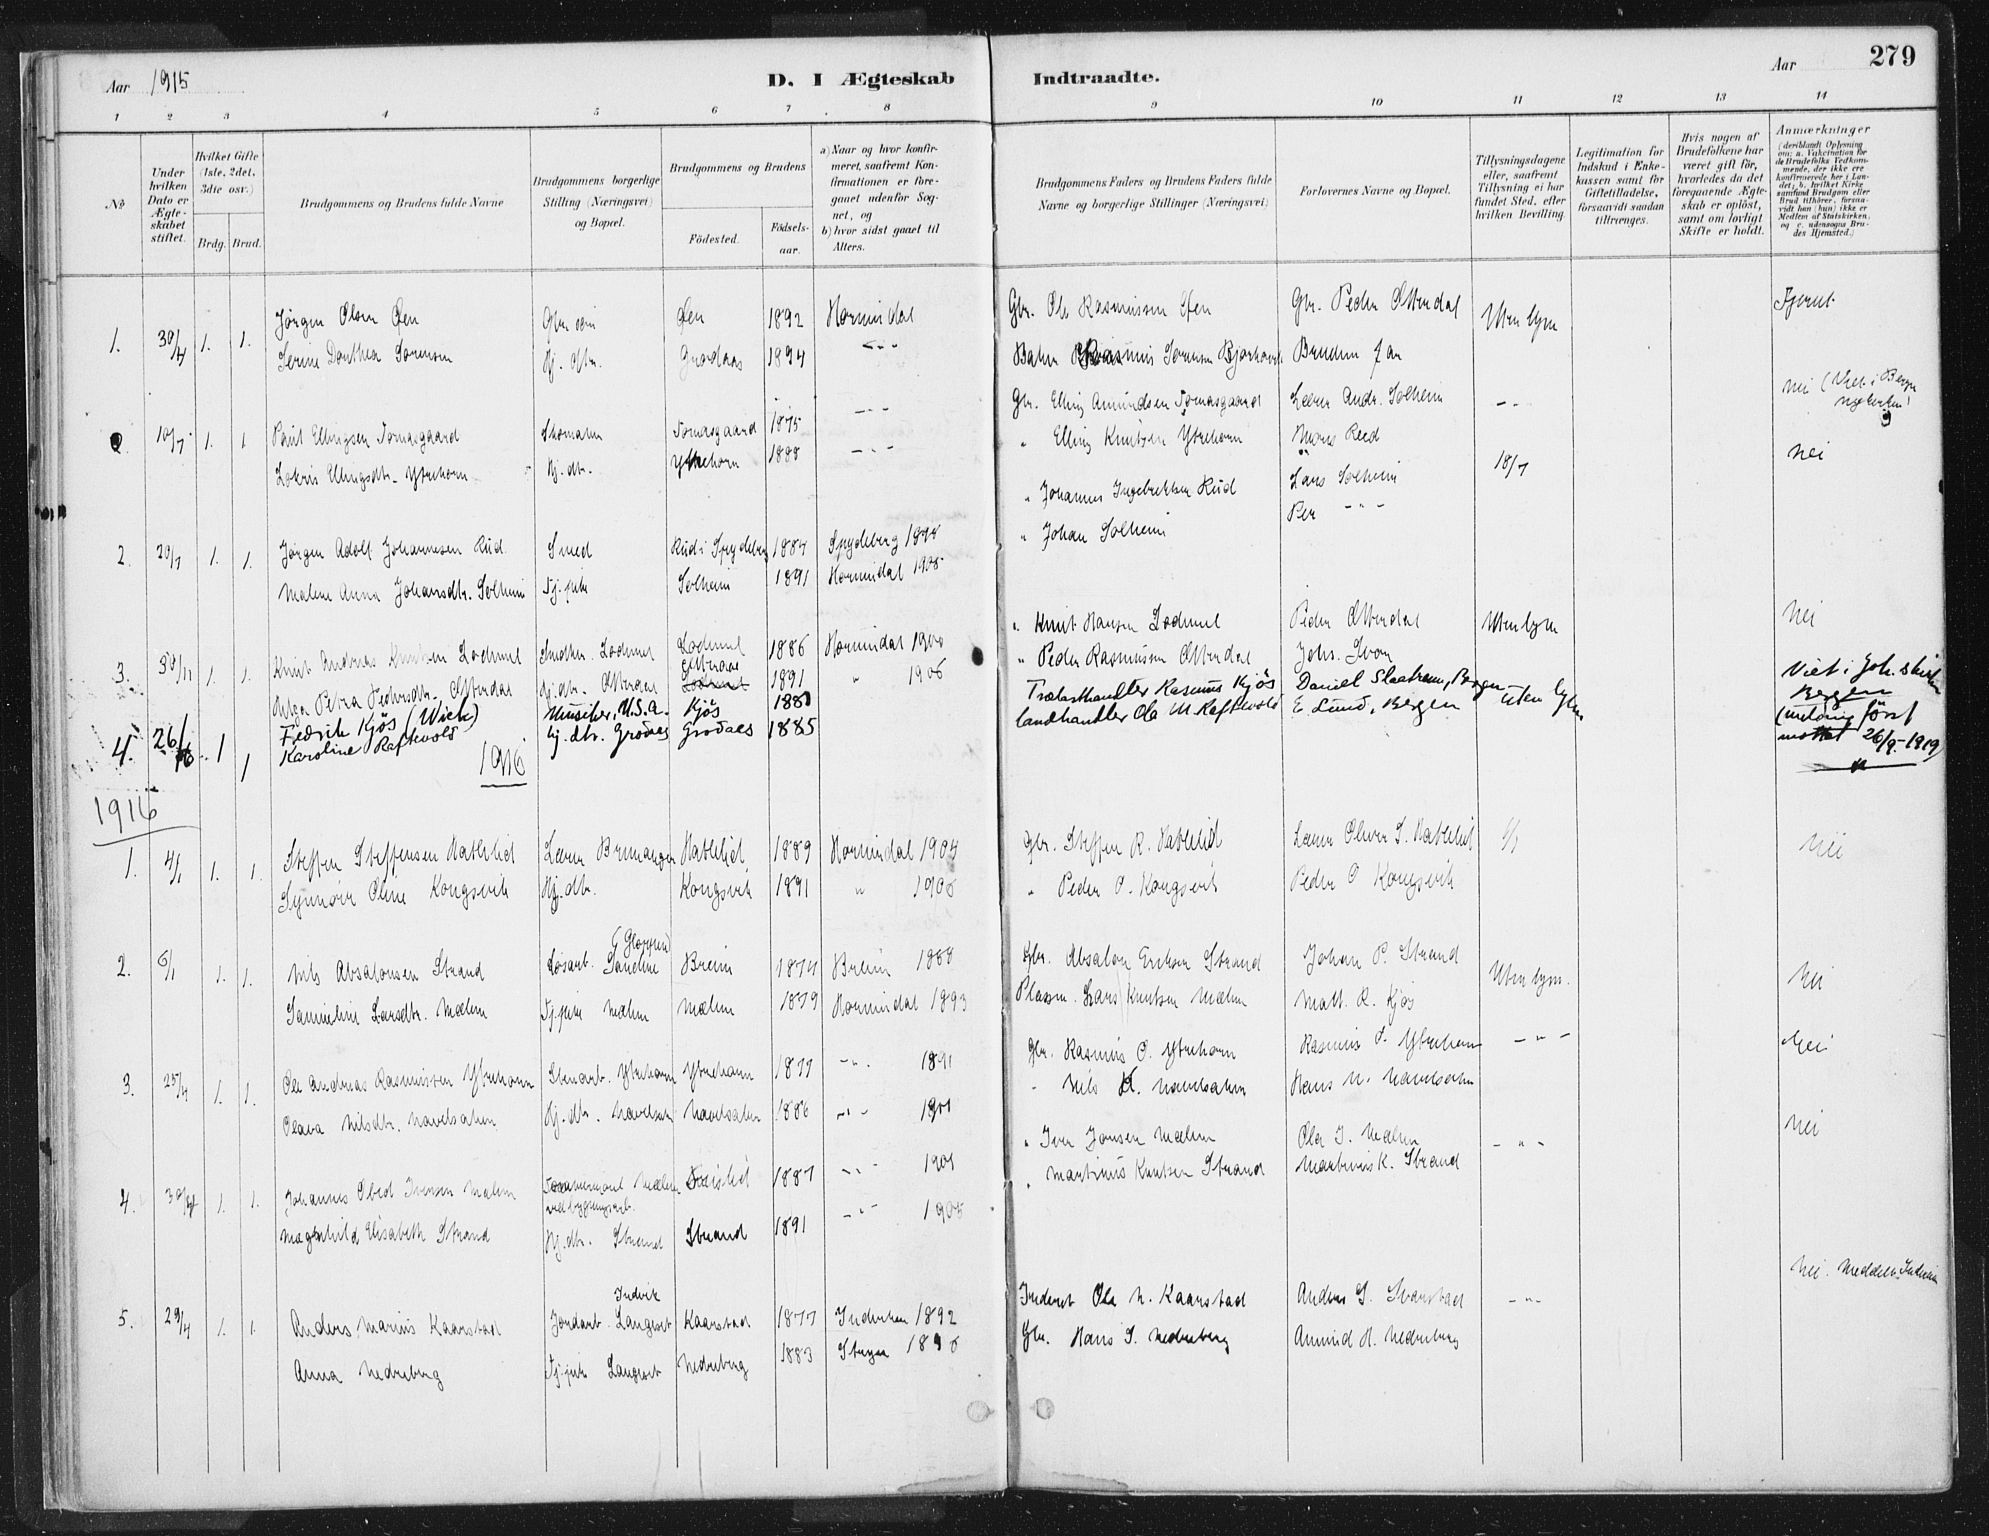 Aar 1915
D. I Ægteskab
Indtraadte.
Aar
279
1 2 3 4 5 6 7 8 9 10 11 12 13 14
No.
Under hvilken Dato er Ægteskabet stiftet.
Hvilket Gifte (1ste, 2det, 3die osv.)
Brdg. Brud.
Brudgommens og Brudens fulde Navne
Brudgommens borgerlige Stilling (Næringsvei) og Bopæl.
Brudgommens og Brudens
Fødested.
Fødselsaar.
a) Naar og hvor konfirmeret, saafremt Konfirmationen er foregaaet udenfor Sognet, og
b) hvor sidst gaaet til Alters.
Brudgommens Faders og Brudens Faders fulde Navne og borgerlige Stillinger (Næringsvei)
Forlovernes Navne og Bopæl.
Tillysningsdagene eller, saafremt Tillysning ei har fundet Sted, efter hvilken Bevilling.
Legitimation for Indskud i Enkekassen samt for Giftetilladelse, forsaavidt saadan tiltrænges.
Hvis nogen af Brudefolkene har været gift før, hvorledes da det foregaaende Ægteskab er opløst, samt om lovligt Skifte er holdt.
Anmærkninger (deriblandt Oplysning om: a. Vakcination for de Brudefolks Vedkommende, der ikke ere konfirmerede her i Landet; b. hvilket Kirkesamfund Brudgom eller Brud tilhører, forsaavidt han (hun) ikke er Medlem af Statskirken, og c. udensogns Brudes Hjemsted.)
1. 30/4 1. 1. Jørgen Olsen Øen Øen 1892 Hornindal Gbr. Ole Rasmussen Øen Gbr. Peder Otterdal Uten lysn
Serine Dorthea Sørensen Hj. dtr. Grodaas 1894 Rasmus Sørensen Bruden far
10/7 1. 1 Paul Ellingsen Tomasgaard Tomasgaard 1875 Gbr. Elling Amundsen Tomasgaard Lærer Andr. Solheim nei (Viet i Bergen
Ellingsdtr. Ytrehorn Hj. dtr. Ytrehorn 1888 " Elling Knutsen Ytrehorn
2. 20/7 1. 1. Jørgen Adolf Johannesen Rud Smed Rud i Spydeberg 1884 Spydeberg 1898 " Johannes Ingebriktsen Rud Lars Solheim 18/7 nei
Malene Anna Johansdtr. Solheim Tj. pike Solheim 1891 Hornindal 1905 " Johan Solheim Per - " -
3. 30/11 1. 1. Knut Andreas Knutsen Lødemel Smedkar. Lødemel Lødemel 1886 Hornindal 1900 " Knut Hansen Lødemel Peder Otterdal Uten lysn nei
Helga Petra Pedersdtr. Otterdal Hj. dtr. Otterdal 1891 " 1906 " Peder Rasmussen Otterdal Johs.
4. 26/10 1 1 Fredrik Kjøs (Wick) Musiker, U.S.A. Kjøs 1880 Trælasthandler Rasmus Kjøs Daniel Bergen Uten lysn Viet i Joh. skirken Bergen
Karoline Raftevold Hj. dtr. Grodaas Grodaas 1885 landhandler Ole M. Raftevold E. Lund, Bergen (melding først mottat 26/9-1919)
1916
1916
1. 4/1 1. 1. Steffen Steffensen Hatlelid Lærer Bremanger Hatlelid 1889 Hornindal 1904 Gbr. Steffen R. Hatlelid Lærer Oliver S. Hatlelid 1/1 nei
Synnøve Oline Kongsvik Hj. dtr. Kongsvik 1891 " 1906 " Peder O. Kongsvik Peder O Kongsvik
2. 6/1 1. 1. Nils Absalonsen Strand Løsarb. Sandene (Gloppen) Breim 1874 Breim 1888 Gbr. Absalon Eriksen Strand Johan P. Strand Uten lysn. nei
Samueline Larsdtr. Mælen Tj. pike Mælen Mælen 1879 Hornindal 1893 Plassm. Lars Knutsen Mælen Matt. R. Kjøs
3. 25/4 1. 1. Ole Andreas Rasmussen Ytrehorn Stenarb. Ytrehorn Ytrehorn 1877 - " - 1891 Gbr. Rasmus O. Ytrehorn Rasmus O. Ytrehorn - " - Nei
Olava Nilsdtr. Navelsaker Hj. dtr. Navelsak. Navelsaker 1886 - " - 1901 - Nils H. Navelsaker Hans N. Navelsaker
4. 30/4 1. 1. Johannes Obed Iversen Mælen Mælen 1887 - " - 1901 " Iver Jonsen Mælen Ole I. Mælen - " - nei
Magnhild Elisabeth Strand Hj. dtr. Strand Strand 1891 - " - 1905 " Martinus Knutsen Strand Martinus K. Strand
5. 29/4 1. 1. Anders Marius Kaarstad Jordarb. Langeset Indvik Kaarstad 1877 Indviken 1892 Ole N. Kaarstad Anders S. Svarstad - " - nei. Meddelt Indviken
Anna Nedreberg Tj. pike Langeset Nedreberg 1883 Stryn 1898 Gbr. Hans S. Nedreberg Amund H. Nedreberg